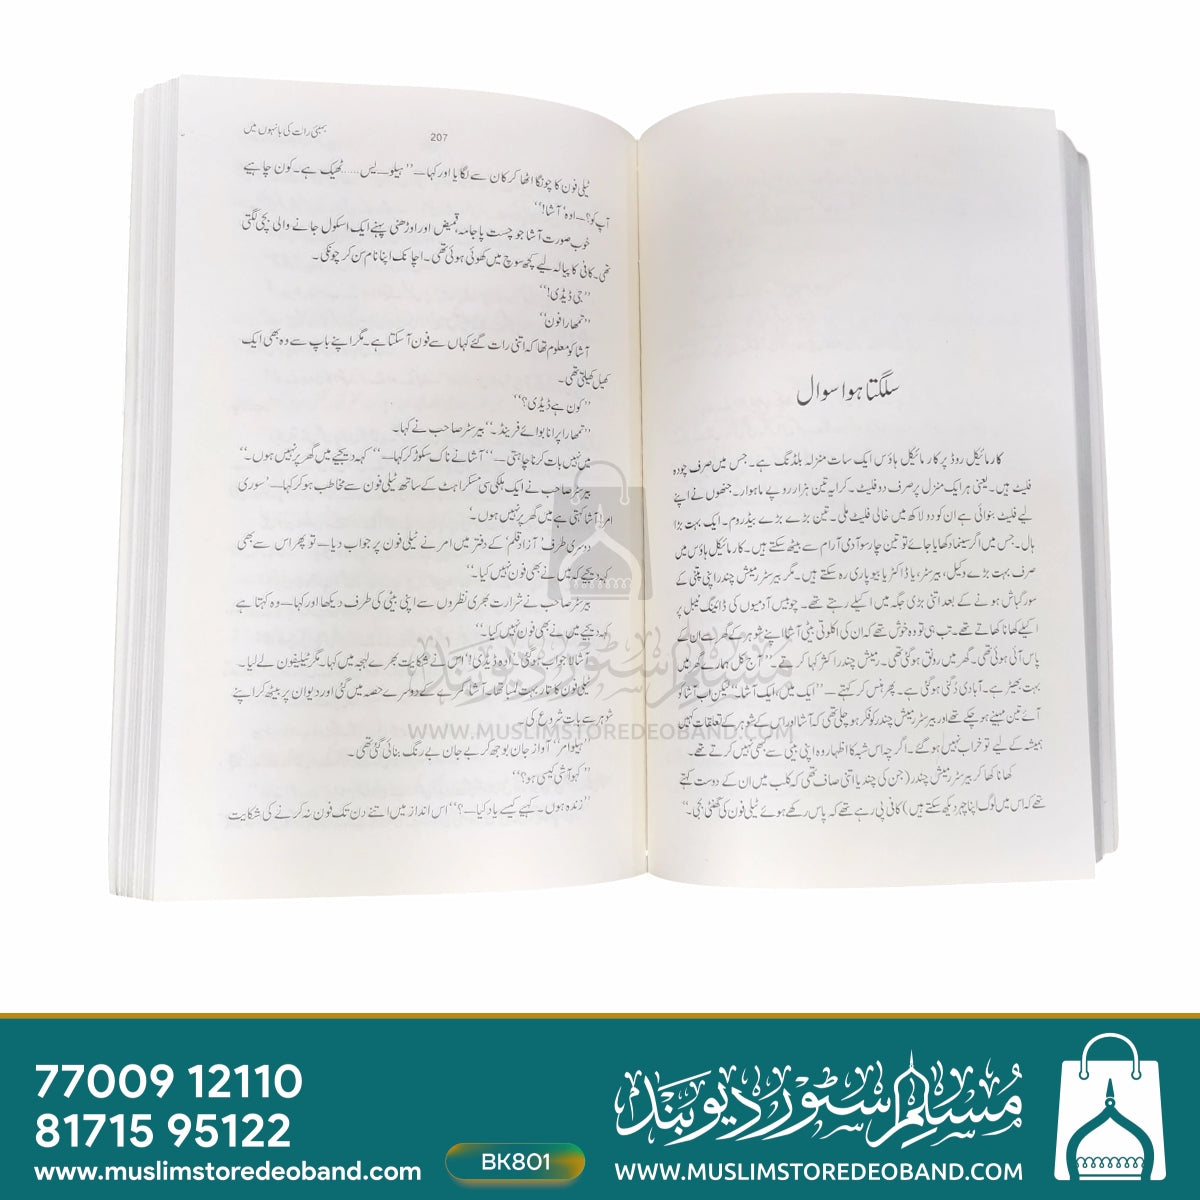 سلگتا ہوا سوال
کارمائیکل روڈ پر کارمائیکل ہاؤس ایک سات منزلہ بلڈنگ ہے۔ جس میں صرف چودہ
فلیٹ ہیں۔ یعنی ہر ایک منزل پر صرف دو فلیٹ۔ کرایہ تین ہزار روپے ماہوار۔ جنھوں نے اپنے
لیے فلیٹ بنوائی ہے ان کو دو لاکھ میں خالی فلیٹ ملی۔ تین بڑے بڑے بیڈ روم۔ ایک بہت بڑا
ہال۔ جس میں اگر سینما دکھایا جائے تو تین چار سو آدمی آرام سے بیٹھ سکتے ہیں۔ کارمائیکل ہاؤس میں
صرف بہت بڑے وکیل، بیرسٹر، یا ڈاکٹر یا بیوپاری رہ سکتے ہیں۔ مگر بیرسٹر رمیش چندر اپنی پتنی کے
سورگباش ہونے کے بعد اتنی بڑی جگہ میں اکیلے رہتے تھے۔ چوبیس آدمیوں کی ڈائننگ ٹیبل پر
اکیلے کھانا کھاتے تھے۔ تب ہی تو وہ خوش تھے کہ ان کی اکلوتی بیٹی آشا اپنے شوہر کے گھر سے ان کے
پاس آئی ہوئی تھی۔ گھر میں رونق ہوگئی تھی۔ رمیش چندر اکثر کہا کرتے تھے۔ ’’آج کل ہمارے گھر میں
بہت بھیڑ ہے۔ آبادی دگنی ہوگئی ہے۔ پھر ہنس کر کہتے — ’’ایک میں، ایک آشا۔‘‘ لیکن اب آشا کو
آئے تین مہینے ہو چکے تھے اور بیرسٹر رمیش چندر کو فکر ہو چلی تھی کہ آشا اور اس کے شوہر کے تعلقات کہیں
ہمیشہ کے لیے تو خراب نہیں ہو گئے۔ اگرچہ اس شبہ کا اظہار وہ اپنی بیٹی سے کبھی نہیں کرتے تھے۔
کھانا کھا کر بیرسٹر رمیش چندر (جن کی چندیا اتنی صاف تھی کہ کلب میں ان کے دوست کہتے
تھے کہ اس میں لوگ اپنا چہرہ دیکھ سکتے ہیں) کافی پی رہے تھے کہ پاس رکھے ہوئے ٹیلی فون کی گھنٹی بجی۔‘‘
بمبئی رات کی بانہوں میں
207
ٹیلی فون کا چونگا اٹھا کر کان سے لگایا اور کہا — ’’ہیلو — یس...... ٹھیک ہے۔ کون چاہیے
آپ کو؟ — اوہ‘ آشا!‘‘
خوب صورت آشا جو چست پاجامہ، قمیض اور اوڑھنی پہنے ایک اسکول جانے والی بچی لگتی
تھی۔ کافی کا پیالہ لیے کچھ سوچ میں کھوئی ہوئی تھی۔ اچانک اپنا نام سن کر چونکی۔
’’جی ڈیڈی!‘‘
’’تمھارا فون‘‘
آشا کو معلوم تھا کہ اتنی رات گئے کہاں سے فون آسکتا ہے۔ مگر اپنے باپ سے وہ بھی ایک
کھیل کھیلتی تھی۔
’’کون ہے ڈیڈی؟‘‘
’’تمھارا پرانا بوائے فرینڈ۔‘‘ بیرسٹر صاحب نے کہا۔
میں نہیں بات کرنا چاہتی —‘‘ آشا نے ناک سکوڑ کر کہا — ’’کہہ دیجیے میں گھر پر نہیں ہوں۔‘‘
بیرسٹر صاحب نے ایک ہلکی سی مسکراہٹ کے ساتھ ٹیلی فون سے مخاطب ہو کر کہا — ’سوری
امر! آشا کہتی ہے میں گھر پر نہیں ہوں۔‘
دوسری طرف ’آزاد قلم‘ کے دفتر میں امر نے ٹیلی فون پر جواب دیا — تو پھر اس سے بھی
کہہ دیجیے کہ میں نے بھی فون نہیں کیا۔‘‘
بیرسٹر صاحب نے شرارت بھری نظروں سے اپنی بیٹی کی طرف دیکھا اور کہا — وہ کہتا ہے
کہہ دیجیے میں نے بھی فون نہیں کیا۔‘‘
آشا لاجواب ہوگئی۔ ’اوہ ڈیڈی!‘ اس نے شکایت بھرے لہجہ میں کہا۔ مگر ٹیلیفون لے لیا۔
ٹیلی فون کا تار بہت لمبا تھا۔ آشا کمرے کے دوسرے حصہ میں گئی اور دیوان پر بیٹھ کر اپنے
شوہر سے بات شروع کی۔
’’ہیلو امر‘‘ آواز جان بوجھ کر بے جان بے رنگ بنائی گئی تھی۔
’’کہو آشی کیسی ہو؟‘‘
’’زندہ ہوں۔ کہیے کیسے یاد کیا —؟‘‘ اس انداز میں اتنے دن تک فون نہ کرنے کی شکایت
مسلم سٹور دیوبند
WWW.MUSLIMSTOREDEOBAND.COM
77009 12110
81715 95122
www.muslimstoredeoband.com
BK801
مسلم سٹور دیوبند
WWW.MUSLIMSTOREDEOBAND.COM